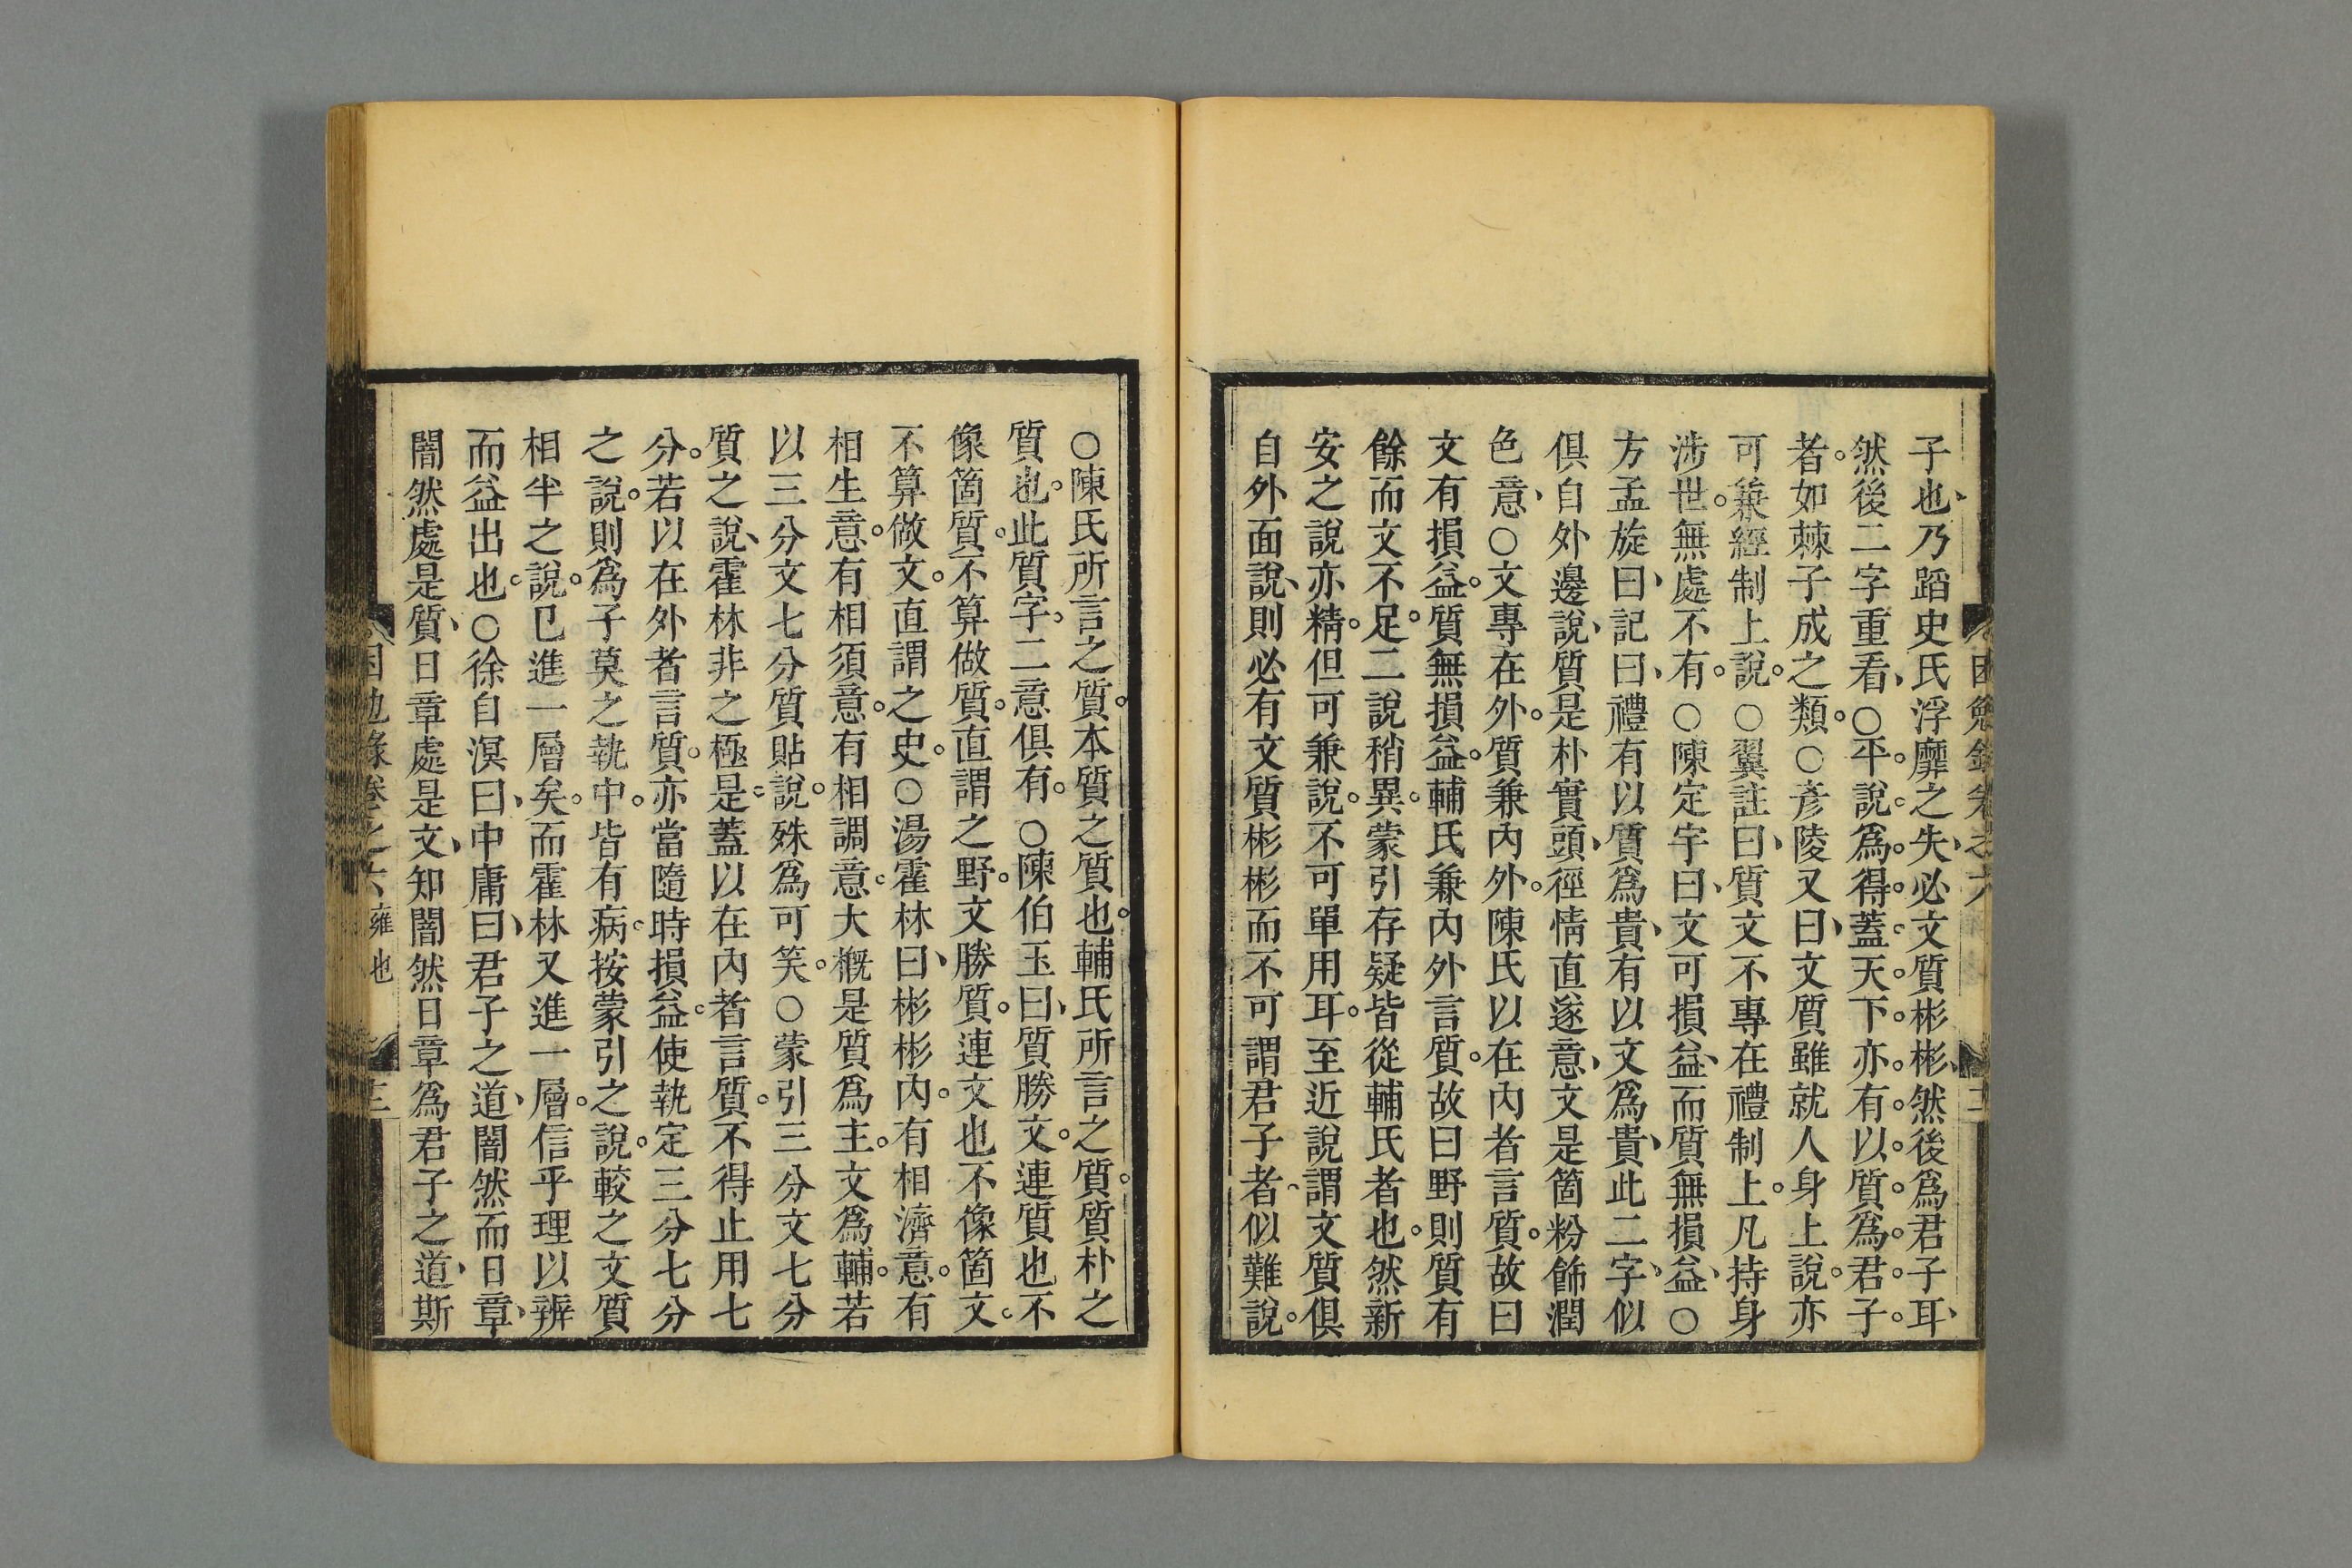 子也、乃蹈史氏浮靡之失、必文質彬彬、然後爲君子耳、
然後二字重看、○平說爲得蓋天下亦有以質爲君子。
者。如棘子成之類。○彥陵又曰、文質雖就人身上說。亦
可兼經制上說。○翼註曰、質文不專在禮制上。凡持身
涉世。無處不有。○陳定宇曰、文可損益、而質無損益、○
方孟旋曰、記曰、禮有以質爲貴、有以文爲貴、此二字、似
俱自外邊說、質是朴實頭、徑情直遂意、文是箇粉飾潤
色意、○文專在外。質兼內外。陳氏以在內者言質。故曰
文有損益。質無損益。輔氏兼內外言質。故曰野則質有
餘而文不足。二說稍異。蒙引存疑皆從輔氏者也。然新
安之說亦精。但可兼說。不可單用耳。至近說謂文質俱
自外面說、則必有文質彬彬而不可謂君子者、似難說。
○陳氏所言之質。本質之質也。輔氏所言之質。質朴之
質也。此質字。二意俱有。○陳伯玉曰、質勝文。連質也不
像箇質。不算做質。直謂之野。文勝質。連文也不像箇文。
不算做文。直謂之史。○湯霍林曰、彬彬內。有相濟意。有
相生意。有相須意。有相調意。大槪是質爲主。文爲輔。若
以三分文七分質貼說。殊爲可笑。○蒙引三分文七分
質之說、霍林非之極是。蓋以在內者言質。不得止用七
分。若以在外者言質。亦當隨時損益。使執定三分七分
之說。則爲子莫之執中。皆有病。按蒙引之說。較之文質
相半之說。已進一層矣。而霍林又進一層。信乎理以辨
而益出也。○徐自溟曰、中庸曰、君子之道、闇然而日章、
闇然處是質、日章處是文、知闇然日章爲君子之道、斯
困勉錄卷之六
雍也